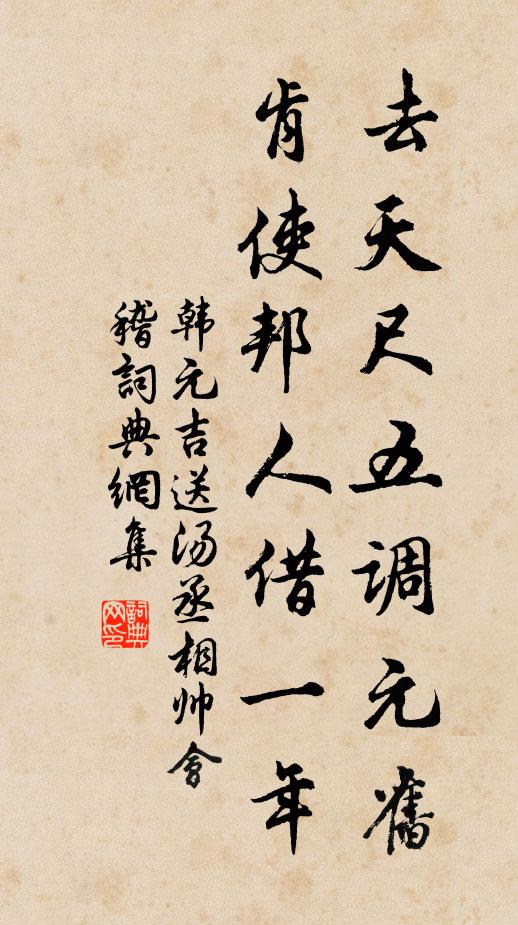 去天尺五调元舊
肯使邦人借一年
韩元吉送汤丞相帅會
稽詞典網集
詞典網印